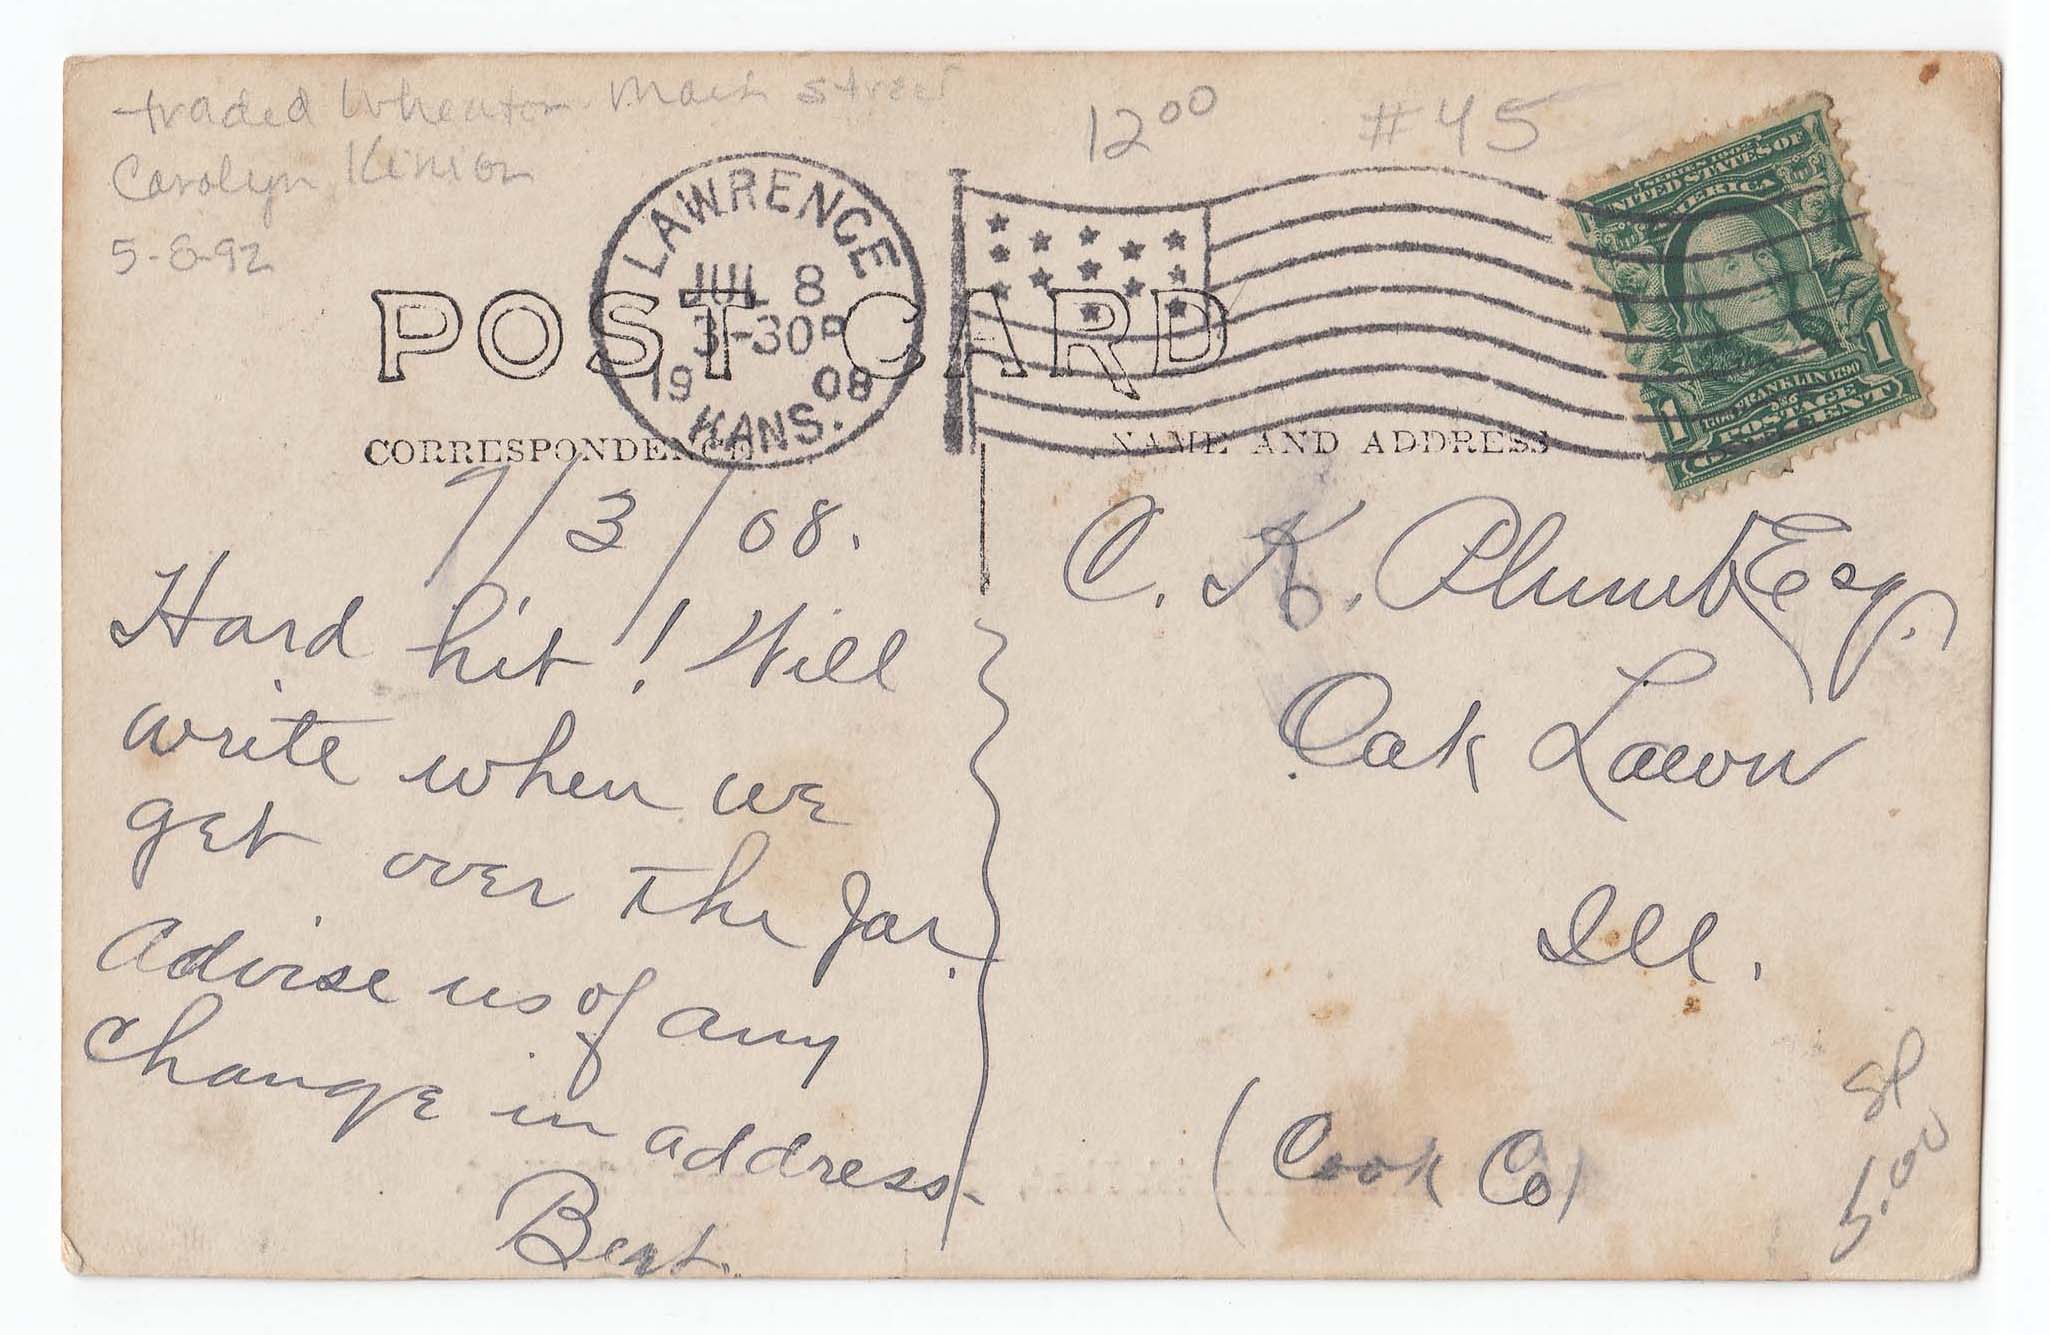 traded Wheaton Main Street
Carolyn Kinion
5-8-92
12.00
#45
LAWRENCE
JUL 8
3-30P
19 08
KANS.
SERIES 1902
UNITED STATES OF
AMERICA
1 1
1706 FRANKLIN 1790
POSTAGE
ONE CENT
POST CARD
CORRESPONDENCE
NAME AND ADDRESS
7/3/08.
Hard hit! Will
write when we
get over the Jar.
Advise us of any
change in address.
Bert.
C. K. Plumb Esq.
Oak Lawn
Ill.
(Cook Co)
5.00